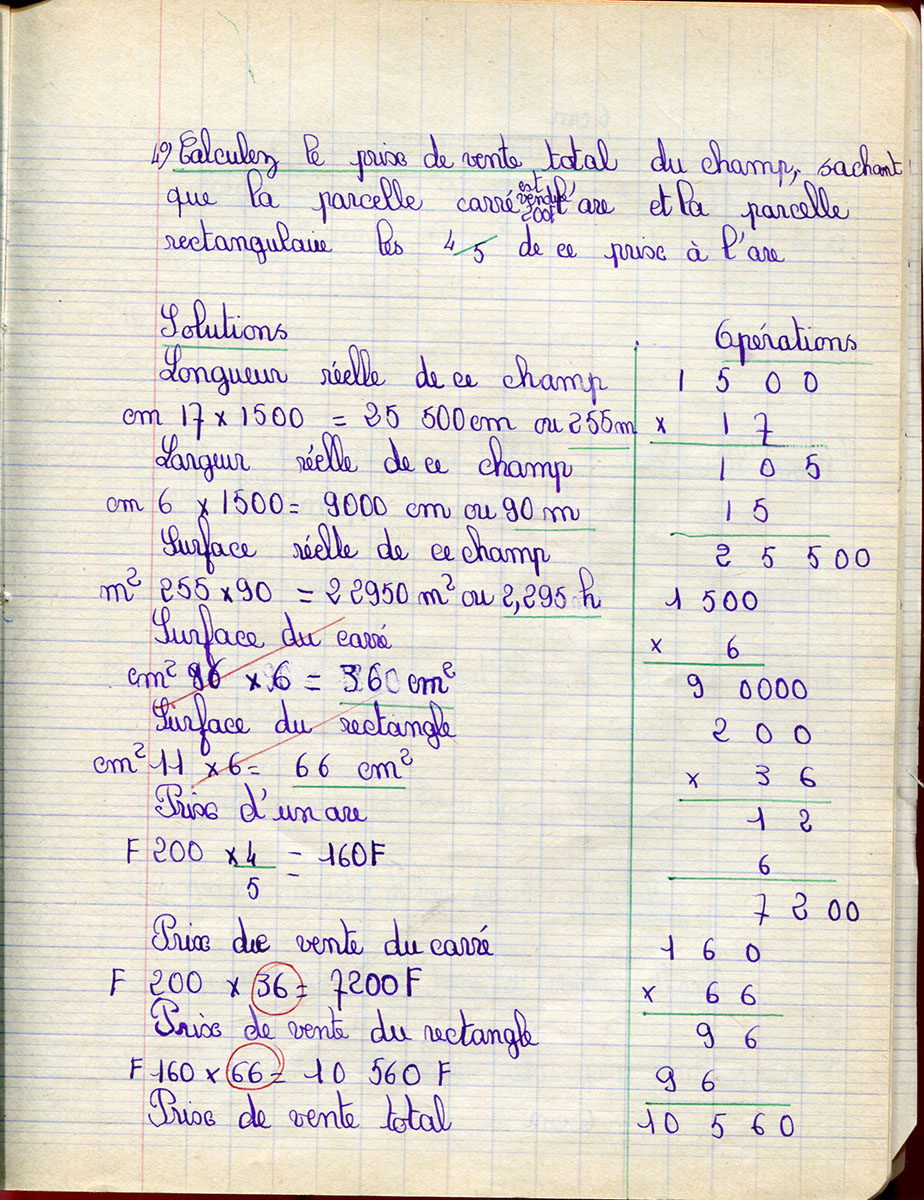 4°) Calculez le prix de vente total du champ, sachant
que la parcelle carré est vendue 200F l'are et la parcelle
rectangulaire les 4/5 de ce prix à l'are
Solutions
Opérations
Longueur réelle de ce champ
cm 17 x 1500 = 25 500 cm ou 255 m
Largeur réelle de ce champ
cm 6 x 1500 = 9000 cm ou 90 m
Surface réelle de ce champ
m² 255 x 90 = 22950 m² ou 2,295 h
Surface du carré
cm² x 6 = 360 cm²
Surface du rectangle
cm² 11 x 6 = 66 cm²
Prix d'un are
F 200 x 4/5 = 160F
Prix de vente du carré
F 200 x 36 = 7200 F
Prix de vente du rectangle
F 160 x 66 = 10 560 F
Prix de vente total
1 5 0 0
x 1 7
1 0 5
1 5
2 5 500
1 500
x 6
9 0000
2 0 0
x 3 6
1 2
6
7 200
1 6 0
x 6 6
9 6
9 6
10 5 6 0